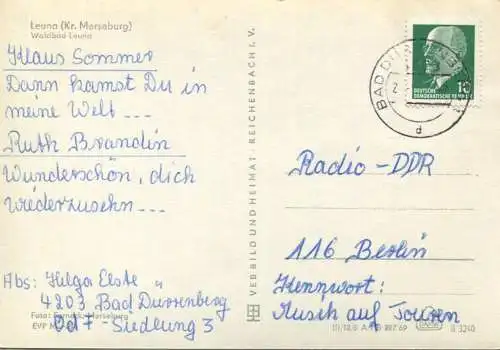 Leuna (Kr. Merseburg)
Waldbad Leuna
Klaus Sommer
Dann kamst Du in
meine Welt ---
Ruth Brandin
Wunderschön, dich
wiederzusehn ---
Abs: Helga Elste
4203 Bad Dürrenberg
Od F - Siedlung 3
Foto: Merseburg
EVP M
VEB BILD UND HEIMAT · REICHENBACH I. V.
BAD DÜ
d
10
DEUTSCHE
DEMOKRATISCHE REPUBLIK
Radio-DDR
116 Berlin
Kennwort:
Musik auf Touren
69
B 3240